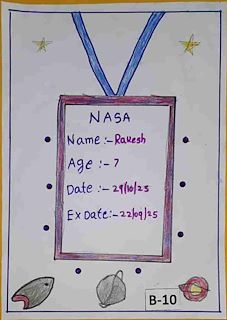 NASA
Name :- Rakesh
Age :- 7
Date :- 29/10/25
Ex Date:- 22/09/25
B-10